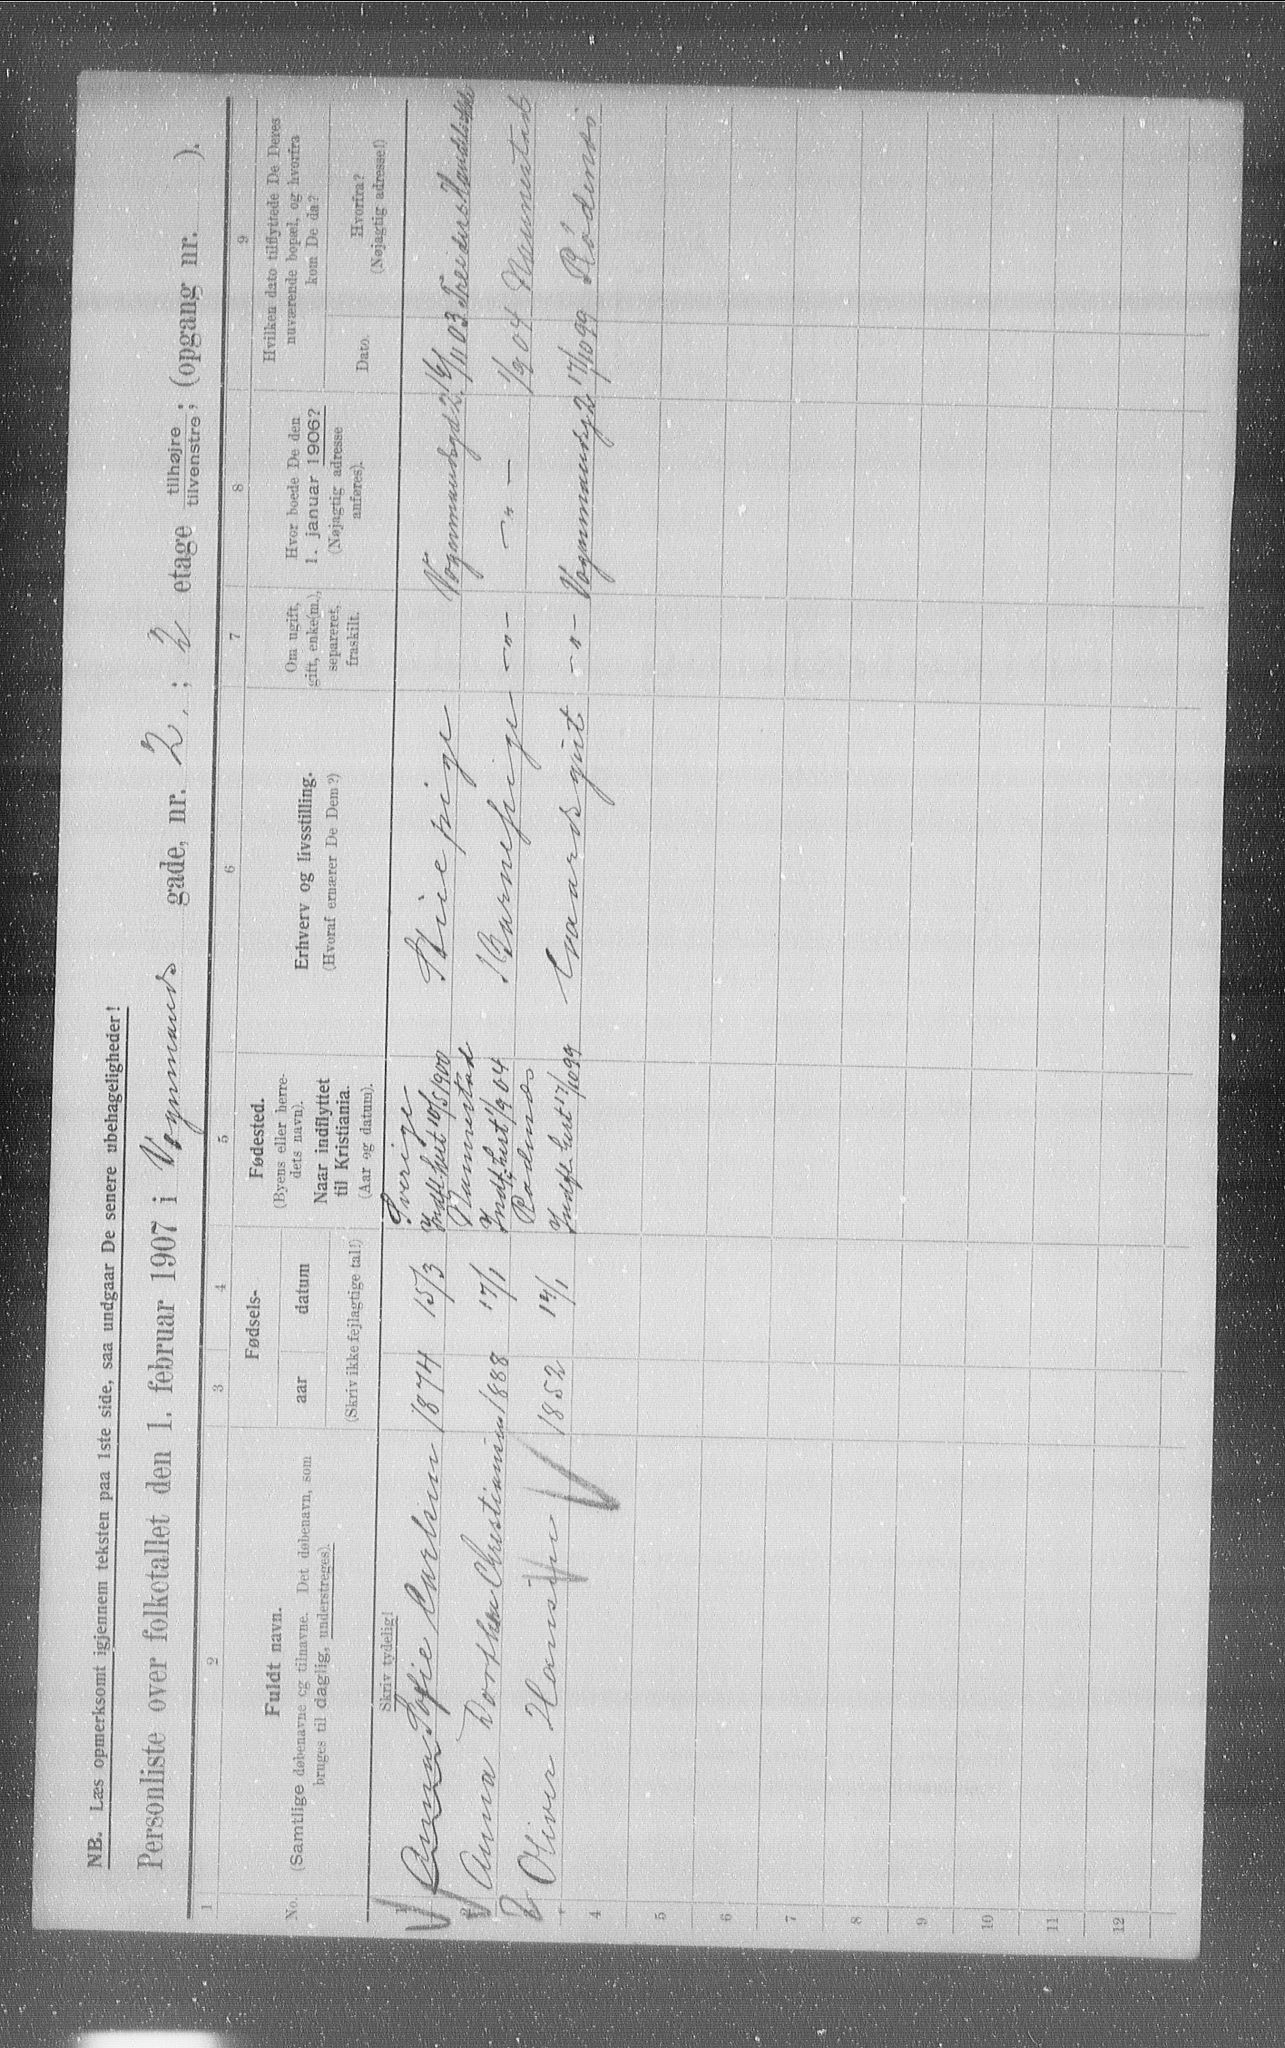 NB. Læs opmerksomt igjennem teksten paa 1ste side, saa undgaar De senere ubehageligheder!
Personliste over folketallet den 1. februar 1907 i Vognmands gade, nr. 2. ; 2 etage tilhøjre tilvenstre; (opgang nr. ).
1 2 3 4 5 6 7 8 9
No.
Fuldt navn.
(Samtlige døbenavne og tilnavne. Det døbenavn, som
bruges til daglig, understreges).
Skriv tydelig!
Fødsels-
aar datum
(Skriv ikke fejlagtige tal!)
Fødested.
(Byens eller herre-
dets navn).
Naar indflyttet
til Kristiania.
(Aar og datum).
Erhverv og livsstilling.
(Hvoraf ernærer De Dem?)
Om ugift,
gift, enke(m.),
separeret,
fraskilt.
Hvor boede De den
1. januar 1906?
(Nøjagtig adresse
anføres).
Hvilken dato tilflyttede De Deres
nuværende bopæl, og hvorfra
kom De da?
Dato.
Hvorfra?
(Nøjagtig adresse!)
1 Anna Sofie Carlsen 1874 15/3 Sverige
Indfl. hert 10/5 1900 pige Vognmandsgd 2 16/11 03
2 Anna Dorthea Christiansen 1888 17/1 Nannestad
Indfl. hert 1/9 04 Barnepige -"- -"- 1/9 04 Nannestad
Oliver Hansen 1852 14/1 Rødenæs
Indfl. hert 17/10 99 Gaardsgut -"- Vognmandsg 2 17/10 99 Rødenæs
4
5
6
7
8
9
10
11
12